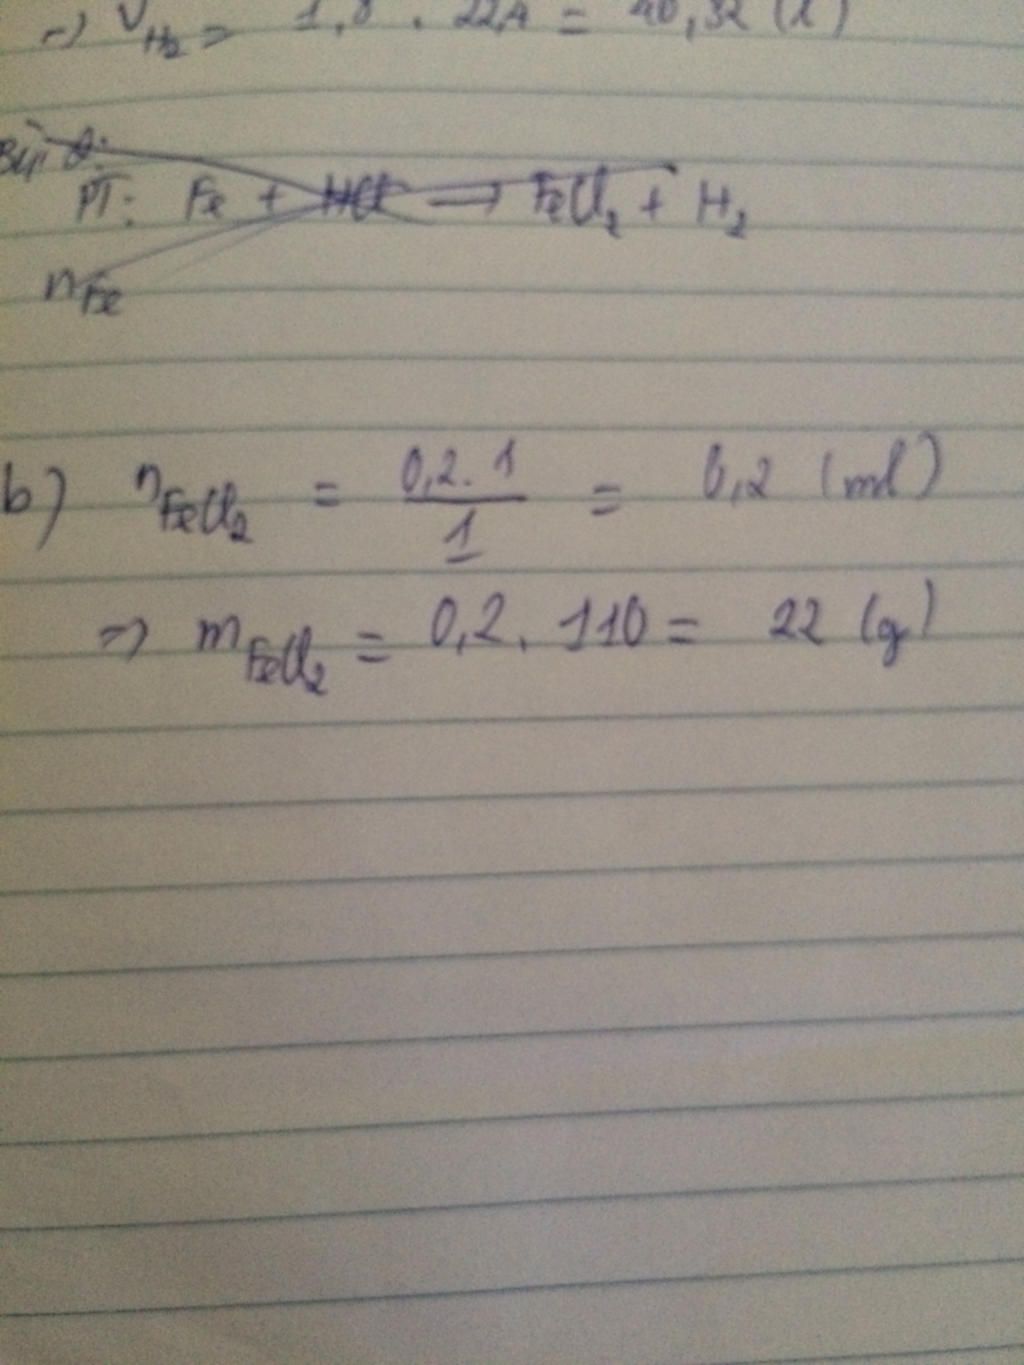 => V H2 = 1,8 . 22,4 = 40,32 (l)
Bài 2:
PT: Fe + HCl → FeCl2 + H2
nFe
b) nFeCl2 = 0,2.1 / 1 = 0,2 (mol)
=> mFeCl2 = 0,2. 110 = 22 (g)